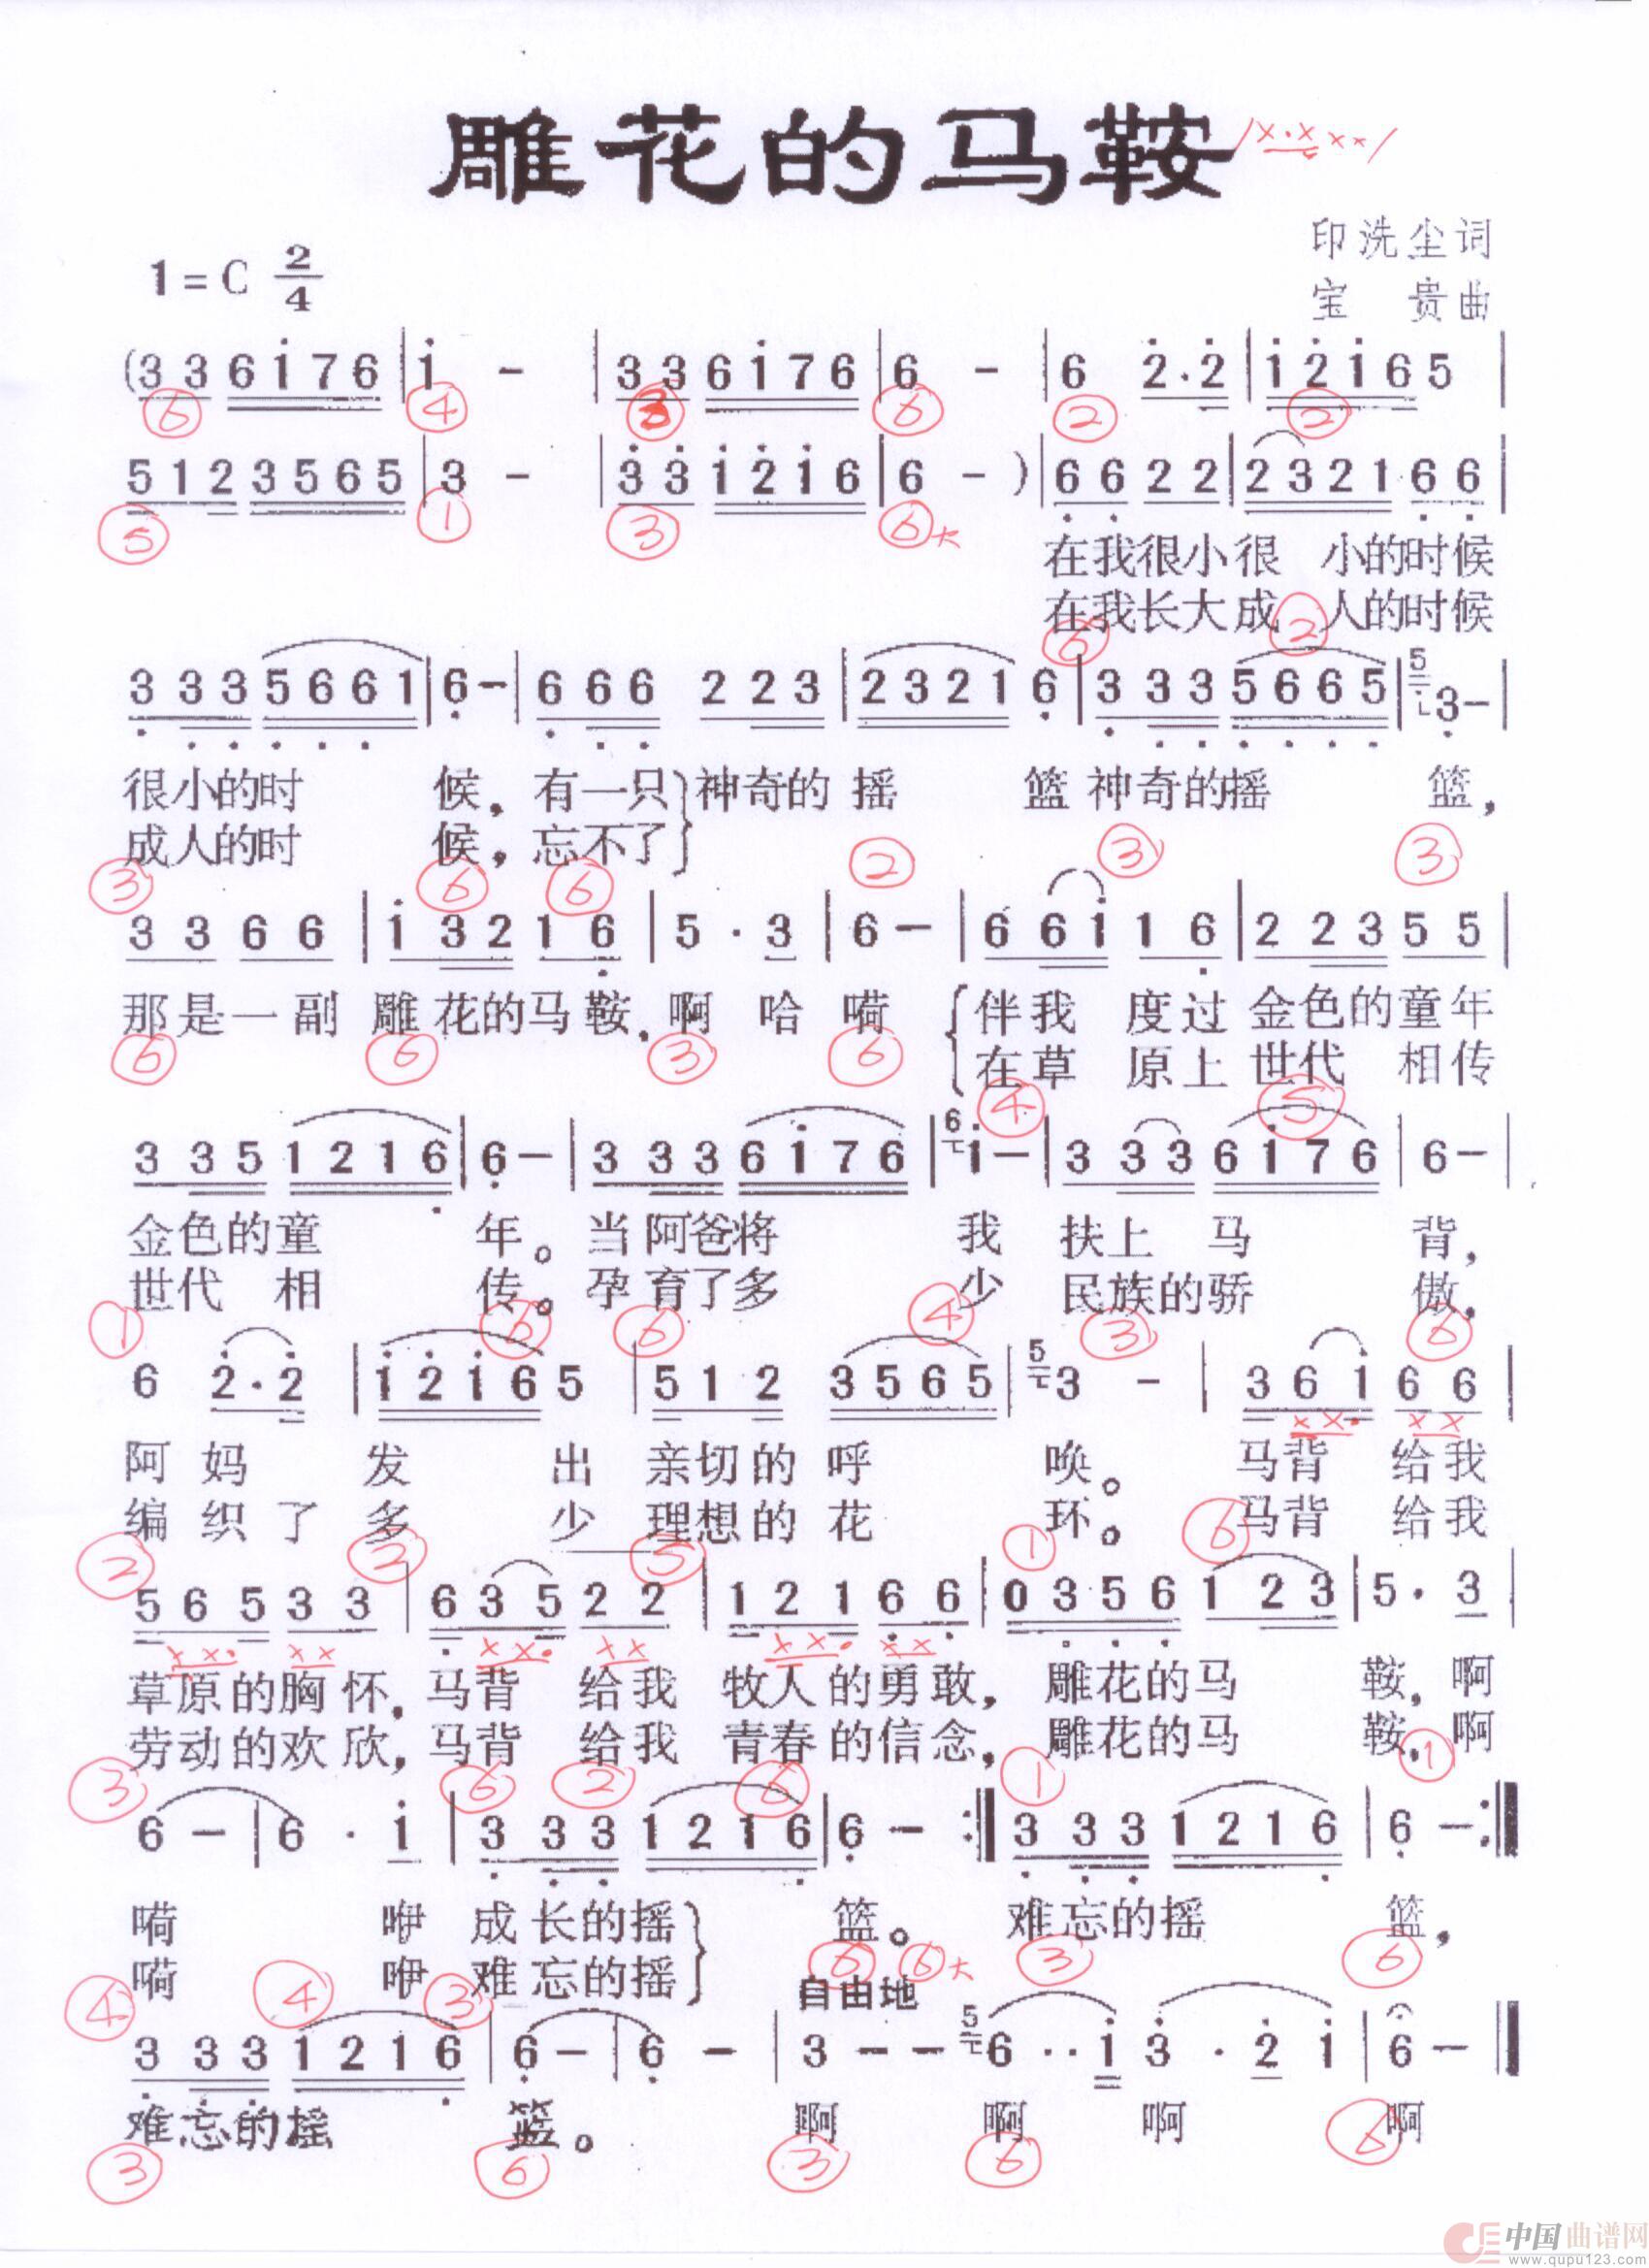 雕花的马鞍 /x·x xx/
印洗尘词
1=C 2/4
宝 贵曲
(3 3 6 i 7 6 | i - | 3 3 6 i 7 6 | 6 - | 6 2·2 | i 2 i 6 5 |
⑥ ④ ⑥ ② ②
5 1 2 3 5 6 5 | 3 - | 3 3 i 2 i 6 | 6 - ) | 6 6 2 2 | 2 3 2 1 6 6 |
⑤ ① ③ ⑥大
在我很小很 小的时候
在我长大成 人的时候
⑥ ②
3 3 3 5 6 6 1 | 6 - | 6 6 6 2 2 3 | 2 3 2 1 6 | 3 3 3 5 6 6 5 | 5 3 - |
很小的时 候,有一只}神奇的 摇 篮 神奇的摇 篮,
成人的时 候,忘不了
③ ⑥ ⑥ ② ③ ③
3 3 6 6 | i 3 2 1 6 | 5 · 3 | 6 - | 6 6 i 1 6 | 2 2 3 5 5 |
那是一副 雕花的马鞍.啊 哈 嗬 {伴我 度过 金色的童年
在草 原上 世代 相传
⑥ ⑥ ③ ⑥ ④ ⑤
3 3 5 1 2 1 6 | 6 - | 3 3 3 6 i 7 6 | 6 i - | 3 3 3 6 i 7 6 | 6 - |
金色的童 年。当阿爸将 我 扶上 马 背,
世代 相 传。孕育了多 少 民族的骄 傲.
① ⑥ ⑥ ④ ③ ⑥
6 2·2 | i 2 i 6 5 | 5 1 2 3 5 6 5 | 5 3 - | 3 6 i 6 6 |
x x· x x
阿妈 发 出 亲切的呼 唤。 马背 给我
编织了多 少 理想的花 环。 马背 给我
② ② ⑤ ① ⑥
5 6 5 3 3 | 6 3 5 2 2 | 1 2 1 6 6 | 0 3 5 6 1 2 3 | 5 · 3 |
x x· x x x x· x x x x· x x
草原的胸怀.马背 给我 牧人的勇敢,雕花的马 鞍,啊
劳动的欢欣,马背 给我 青春的信念,雕花的马 鞍,啊
③ ⑥ ② ⑥ ① ①
6 - | 6 · i | 3 3 3 1 2 1 6 | 6 - :‖ 3 3 3 1 2 1 6 | 6 - :‖
嗬 咿 成长的摇} 篮。 难忘的摇 篮,
嗬 咿 难忘的摇
④ ④ ③ ⑥ ⑥大 ③ ⑥
自由地
3 3 3 1 2 1 6 | 6 - | 6 - | 3 - - 5 6 · · i 3 · 2 i | 6 - ‖
难忘的摇 篮。 啊 啊 啊 啊
③ ⑥ ③ ⑥ ⑥
中国曲谱网
www.qupu123.com